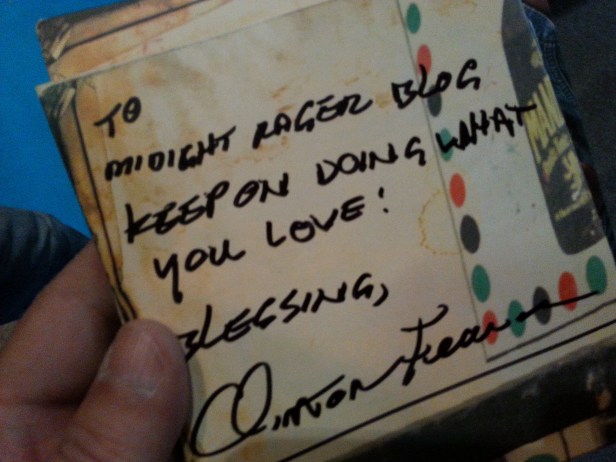 TO
MIDIGHT RAGER BLOG
KEEP ON DOING WHAT
YOU LOVE!
BLESSING,
Clinton Fearon